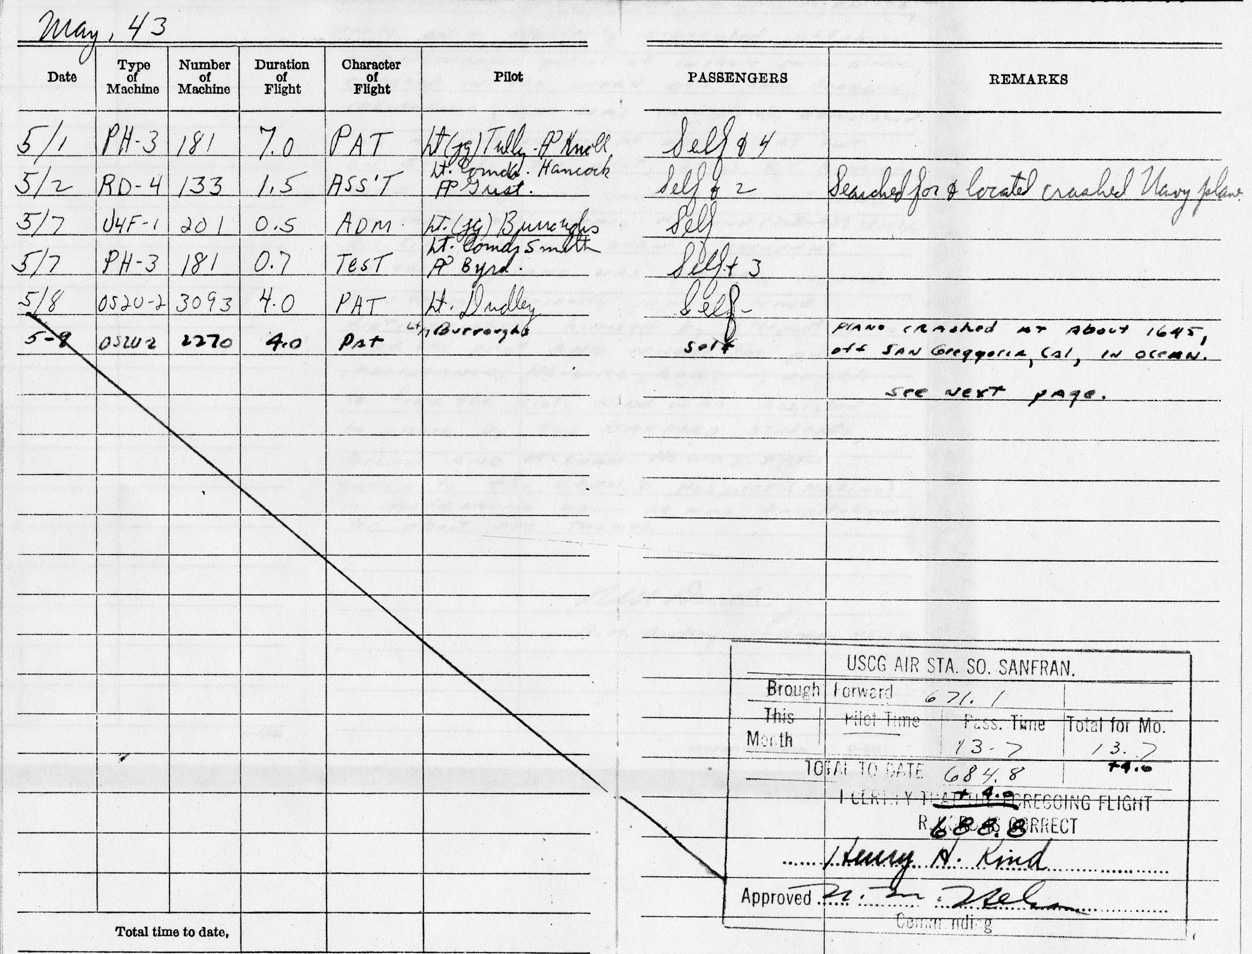 May, 43
Date Type of Machine Number of Machine Duration of Flight Character of Flight Pilot PASSENGERS REMARKS
5/1 PH-3 181 7.0 PAT Lt(jg) Tully - AP Knoll Self & 4
5/2 RD-4 133 1.5 ASS'T Lt. Comdr. Hancock AP Grist. Self & 2 Searched for & located crashed Navy plane
5/7 J4F-1 201 0.5 ADM. Lt.(jg) Burroughs Self
5/7 PH-3 181 0.7 TEST Lt. Comdr Smith AP Byrd. Self + 3
5/8 OS2U-2 3093 4.0 PAT Lt. Dudley Self
5-9 OS2U-2 2270 4.0 Pat Burroughs Self crashed at about 1645,
off San Greggoria, Cal, in ocean.
see next page.
USCG AIR STA. SO. SANFRAN.
Brough Forward 671.1
This Month Pilot Time Pass. Time Total for Mo.
13.7 13.7
+4.0
TOTAL TO DATE 684.8
+ 4.0
I CERTIFY THAT THE FOREGOING FLIGHT
688.8
CORRECT
Henry H. Rind
Approved
Commanding
Total time to date,